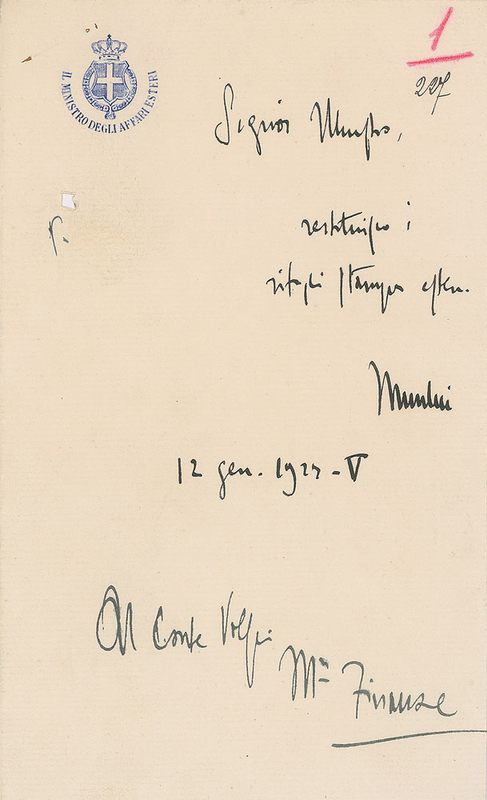 1
227
IL MINISTRO DEGLI AFFARI ESTERI
Signor Ministro,
restituisco i
ritagli stampa estera.
Mussolini
12 gen. 1927 - V
Al Conte Volpi
Mro Finanze